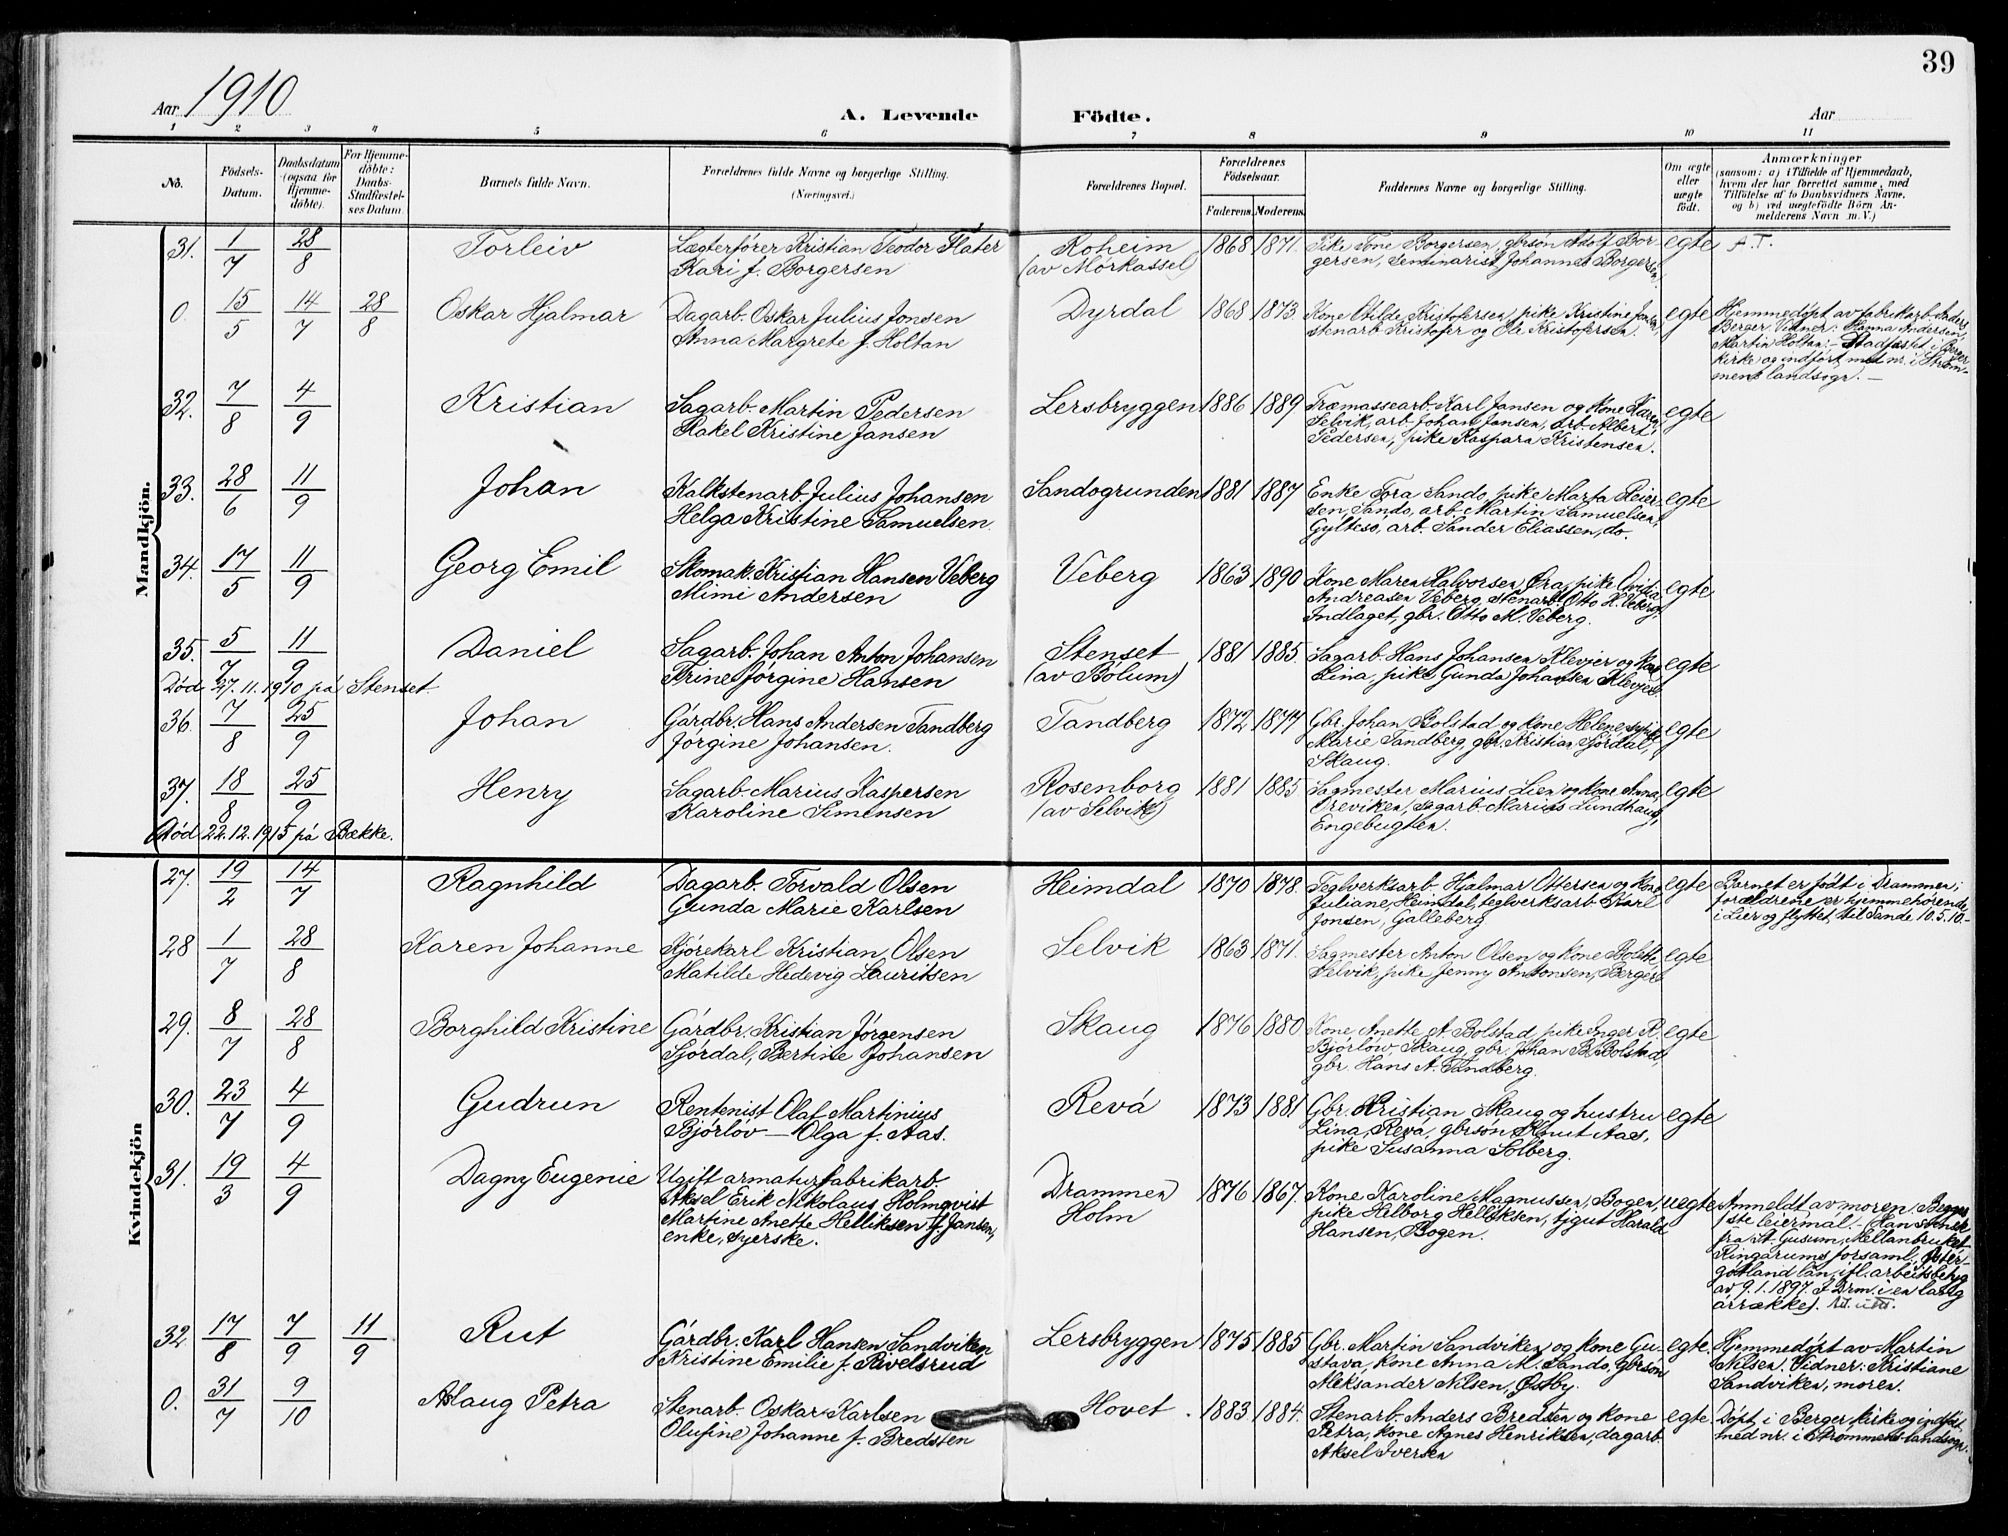 39
Aar 1910
A. Levende Födte.
Aar
1 2 3 4 5 6 7 8 9 10 11
No.
Födsels-Datum.
Daabsdatum (ogsaa for Hjemme-döbte).
For Hjemme-döbte: Daabs-Stadfæstel-ses Datum.
Barnets fulde Navn.
Forældrenes fulde Navne og borgerlige Stilling.
(Næringsvei.)
Forældrenes Bopæl.
Forældrenes Födselsaar.
Faderens. Moderens.
Faddernes Navne og borgerlige Stilling.
Om ægte eller uægte födt.
Anmærkninger
(saasom: a) i Tilfælde af Hjemmedaab,
hvem der har forrettet samme, med
Tilföielse af to Daabsvidners Navne,
og b) ved uægtefödte Börn An-
melderens Navn m. V.)
Mandkjön.
31. 1/7 28/8 Torleiv
Lægterfórer Kristian Teodor Flater
Kari f. Borgersen
Roheim
(av Mórkassel)
1868 1871.
Pike Tone Borgersen, gbrsón Adolf Bor-
gersen, Seminarist Johannes Borgersen.
egte
A.T.
0. 15/5 14/7 28/8 Oskar Hjalmar
Dagarb. Oskar Julius Jonsen
Anna Margrete f. Holtan
Dyrdal
1868 1873
Kone Otilde Kristofersen, pike Kristine Jonsen,
stenarb. Kristofer og Ole Kristofersen.
egte
Hjemmedópt av fabrikarb. Anders
Berger. Vidner: Hanna Andersen,
Martin Holtan. – Stadfæstet i Berger
kirke og indfórt med nr. i Stróm-
mens landsogn. –
32. 7/8 4/9 Kristian
Sagarb. Martin Pedersen
Rakel Kristine Jansen
Lersbryggen
1886 1889
Træmassearb. Karl Jansen og kone Karen
Selvik, arb. Johan Jansen, arb. Albert
Pedersen, pike Kaspara Kristensen.
egte
33. 28/6 11/9 Johan
Kalkstenarb. Julius Johansen
Helga Kristine Samuelsen.
Sandogrunden
1881 1887
Enke Tora Sando, pike Marta Reier-
sen, Sando, arb. Martin Samuelsen,
Gylteso, arb. Sander Eliassen, do.
egte
34. 17/5 11/9 Georg Emil
Skomak. Kristian Hansen Veberg
Mimi Andersen
Veberg
1863 1890
Kone Maren Halvorsen Øra, pike Ovidia
Andreasen Veberg, stenarb. Otto H. Veberg,
Indlaget, gbr. Otto M. Veberg.
egte
35. 5/7 11/9 Daniel
Sagarb. Johan Anton Johansen
Trine Jórgine Hansen
Stenset
(av Bólum)
1881 1885.
Sagarb. Hans Johansen Klevjer og kone
Lina, pike Gunda Johansen Klevjer.
egte
Død 27.11.1910 på Stenset.
36. 7/8 25/9 Johan
Gárdbr. Hans Andersen Tandberg
Jórgine Johansen.
Tandberg
1872 1877
Gbr. Johan Bolstad og kone Helene, sypike
Marie Tandberg, gbr. Kristian Sjórdal,
Skaug.
egte
37. 18/8 25/9 Henry
Sagarb. Marius Kaspersen
Karoline Simensen
Rosenborg
(av Selvik)
1881 1885
Sagmester Marius Lien og kone Anna,
Oreviken, sagarb. Marius Lundhaug,
Engebugten.
egte
Død 22.12.1915 på Bække.
Kvindekjön
27. 19/2 14/7 Ragnhild
Dagarb. Torvald Olsen
Gunda Marie Karlsen
Heimdal
1870 1878.
Teglverksarb. Hjalmar Ottersen og kone
Juliane, Heimdal, teglverksarb. Karl
Jonsen, Galleberg.
egte
Barnet er födt i Drammen;
forældrene er hjemmehórende
i Lier og flyttet til Sande 10.5.10. –
28 1/7 28/8 Karen Johanne
Kjórekarl Kristian Olsen
Matilde Hedevig Lauritsen
Selvik
1863 1871.
Sagmester Anton Olsen og kone Bolette
Selvik, pike Jenny Antonsen, Berger
egte
29. 8/7 28/8 Borghild Kristine
Gárdbr. Kristian Jórgensen
Sjórdal, Bertine Johansen
Skaug
1876 1880.
Kone Anette A. Bolstad, pike Inger R.
Bjórlów, Skaug, gbr. Johan B. Bolstad,
gbr. Hans A. Tandberg.
egte
30. 23/7 4/9 Gudrun
Rentenist Olaf Martinius
Bjórlóv – Olga f. Aas.
Revá
1873 1881
Gbr. Kristian Skaug og hustru
Lina, Revá, gbrsón Knut Aas,
pike Susanna Solberg.
egte
31. 19/3 4/9 Dagny Eugenie
Ugift armaturfabrikarb.
Aksel Erik Nikolaus Holmqvist
Martine Anette Helliksen f. Jansen,
enke, syerske.
Drammen
Holm
1876 1867.
Kone Karoline Magnussen, Bogen,
pike Helborg Helliksen, tjgut Harald
Hansen, Bogen.
uegte
Anmeldt av moren. Begges
1ste leiermål. – (Han svensk
fra St. Gusum, Mellanbruket
Ringarums forsaml. Øster-
götland lân, ifl. arbeitsbetyg
av 9.1.1897. I Drm. i en lang
årrække).
32. 17/8 7/9 11/9 Rut
Gárdbr. Karl Hansen Sandviken
Kristine Emilie f. Rivelsrud
Lersbryggen
1875 1885
Gbr. Martin Sandviken og kone Gu-
stava, kone Anna M. Sando, gbrsón
Aleksander Nilsen, Østby.
egte.
Hjemmedópt av Martin
Nilsen. Vidner: Kristiane
Sandviken, moren.
0. 31/7 9/10 Aslaug Petra
Stenarb. Oskar Karlsen
Olufine Johanne f. Bredsten
Hovet.
1883 1884.
Stenarb. Anders Bredsten og kone
Petra, kone Agnes Henriksen, dagarb.
Aksel Iversen
egte.
Dópt i Berger kirke og indfórt
med nr. i Strómmens landsogn.